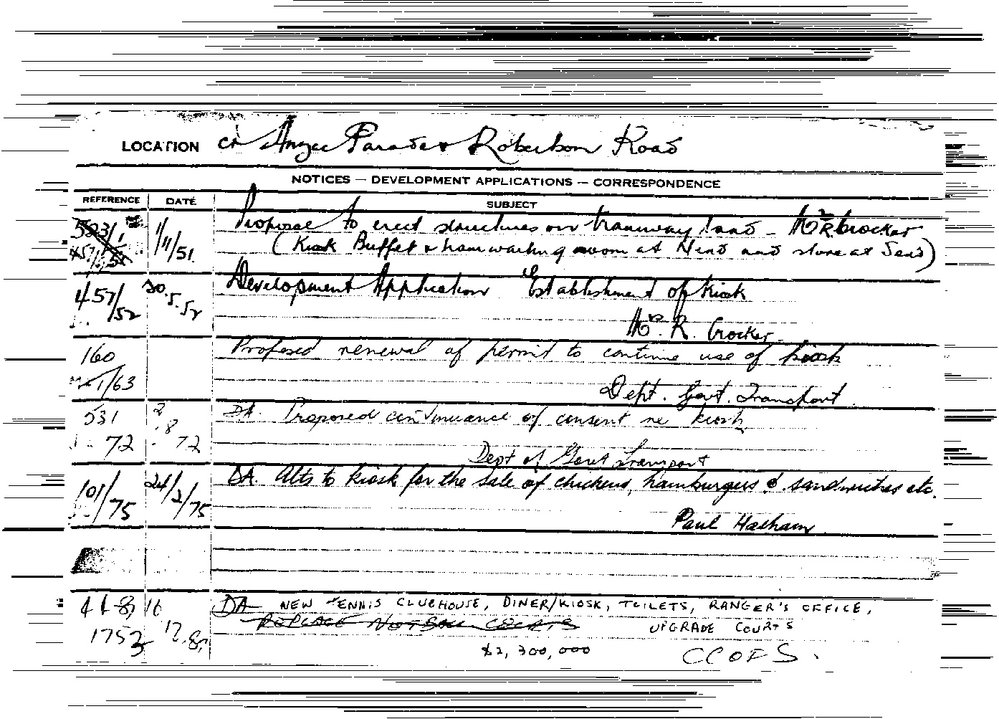 LOCATION Cr Anzac Parade & Robertson Road
NOTICES — DEVELOPMENT APPLICATIONS — CORRESPONDENCE
REFERENCE DATE SUBJECT
1/11/51 Proposal to erect structures on tramway land - Mr R. Crocker
(Kiosk Buffet & tram waiting room at Head and store at Seas)
457/52 30.5.52 Development Application Establishment of Kiosk
Mr. R. Crocker.
160 Proposed renewal of permit to continue use of kiosk
1/63 Dept. Govt. Transport.
531 2 DA. Proposed continuance of consent re kiosk
72 8 72
Dept of Govt Transport
101/75 24/2/75 DA. Alts to kiosk for the sale of chickens, hamburgers & sandwiches etc.
Paul Hasham
DA NEW TENNIS CLUBHOUSE, DINER/KIOSK, TOILETS, RANGER'S OFFICE,
REPLACE NETBALL COURTS UPGRADE COURTS
$2,300,000 CCOFS.